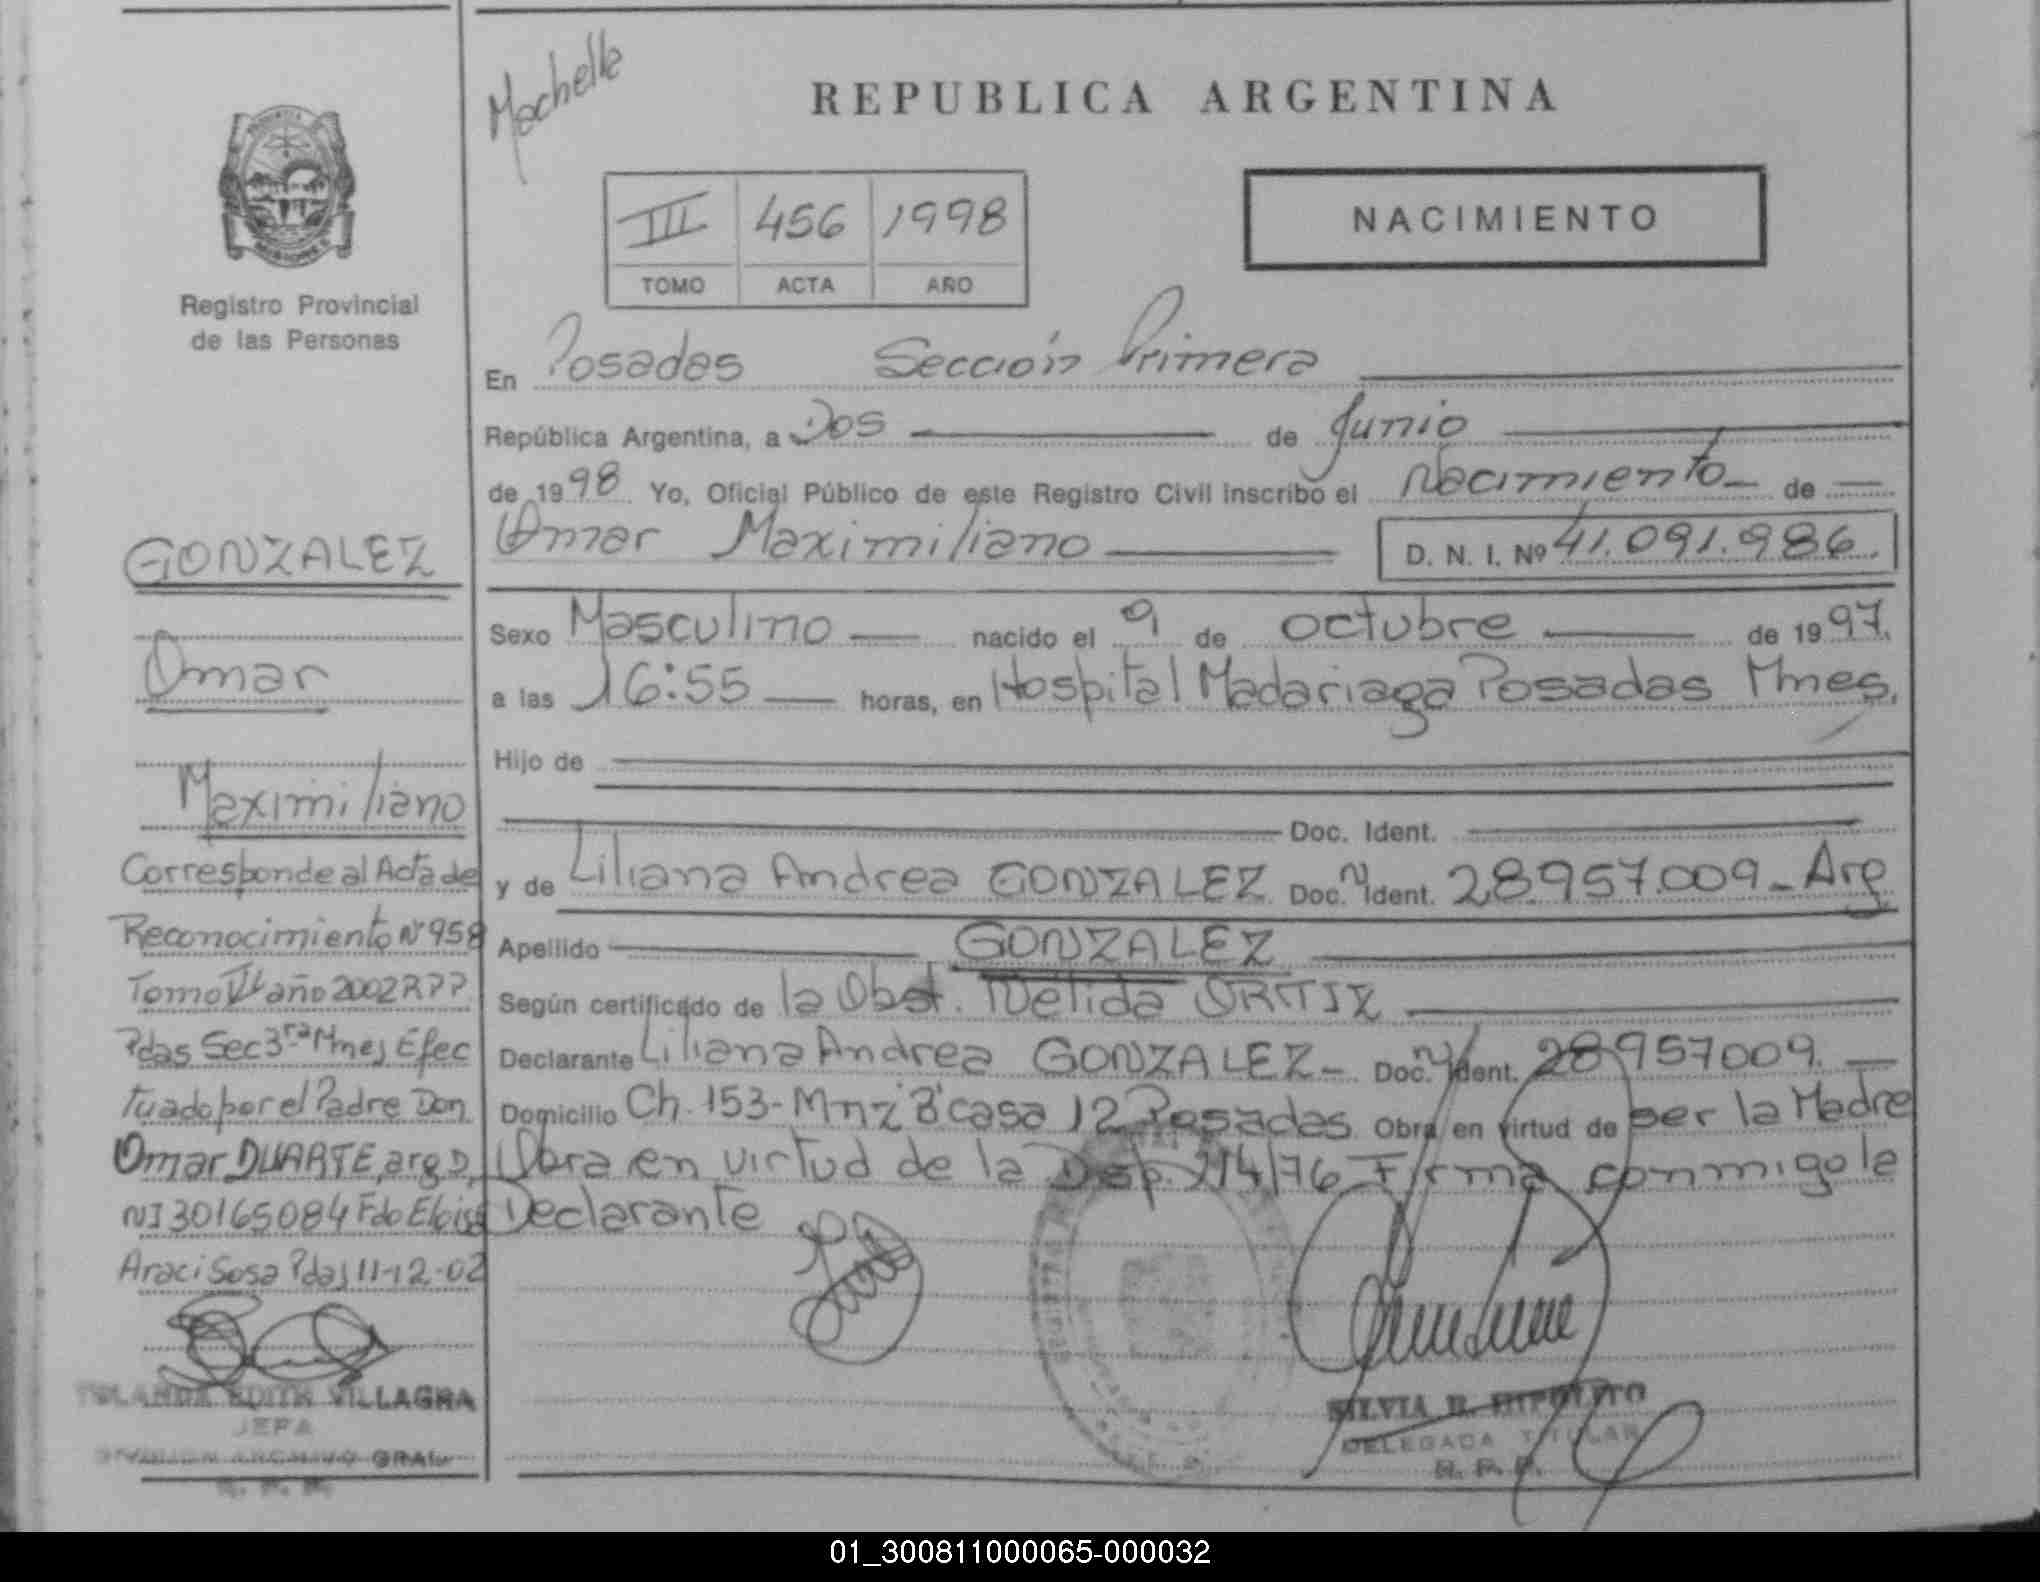 Mochelle
REPUBLICA ARGENTINA
III 456 1998
TOMO ACTA AÑO
NACIMIENTO
Registro Provincial
de las Personas
En Posadas Sección Primera
República Argentina, a Dos de Junio
de 1998 Yo, Oficial Público de este Registro Civil inscribo el Nacimiento de
Omar Maximiliano D. N. I. Nº 41.091.986
Sexo Masculino nacido el 9 de octubre de 1997.
a las 16:55 horas, en Hospital Madariaga Posadas Mnes.
Hijo de
Doc. Ident.
y de Liliana Andrea GONZALEZ Doc. N Ident. 28.957.009 - Arg
Apellido GONZALEZ
Según certificado de la Obst. Nelida ORTIZ
Declarante Liliana Andrea GONZALEZ - Doc. N Ident. 28957009.
Domicilio Ch. 153 - Mnz "B" casa 12 Posadas Obra en virtud de ser la Madre
Obra en virtud de la Disp. 214/76 Firma conmigo la
Declarante
GONZALEZ
Omar
Maximiliano
Corresponde al Acta de
Reconocimiento Nº 958
Tomo año 2002 RPP
Pdas Sec 3ra Mnes Efec
tuado por el Padre Don
Omar DUARTE, arg D.
NI 30165084 Fdo Eloisa
Araci Sosa Pdas 11-12-02
YOLANDA EDITH VILLAGRA
JEFA
DIVISION ARCHIVO GRAL.
R. P. P.
SILVIA R. HIPOLITO
DELEGADA TITULAR
R. P. P.
01_300811000065-000032